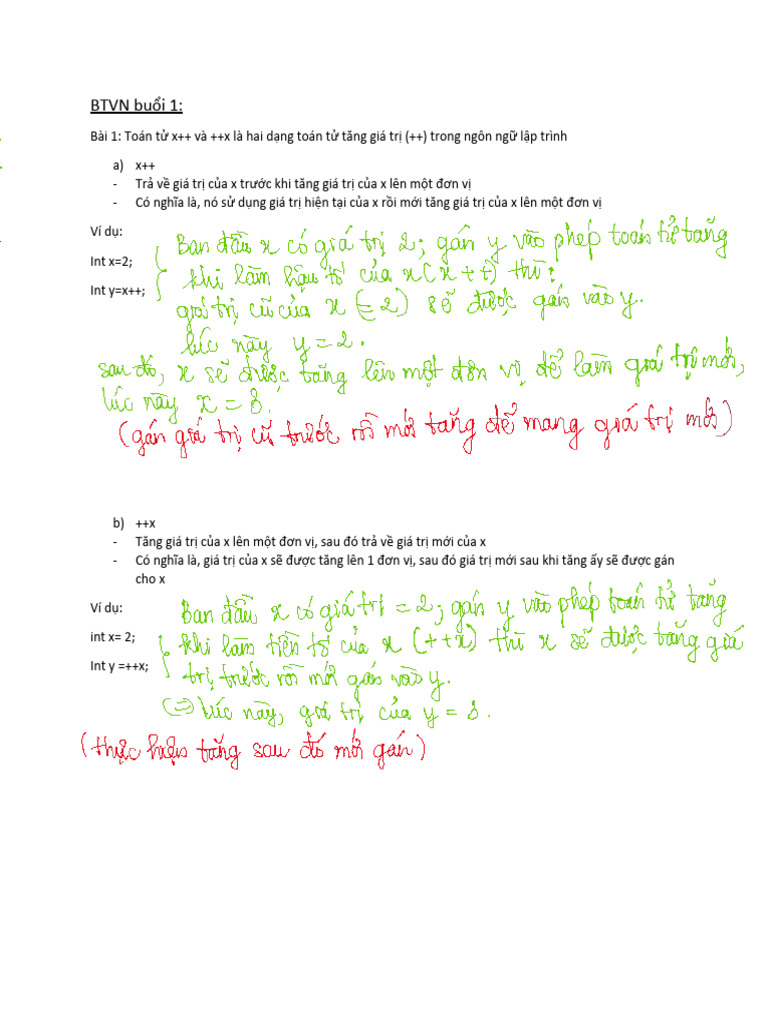 BTVN buổi 1:
Bài 1: Toán tử x++ và ++x là hai dạng toán tử tăng giá trị (++) trong ngôn ngữ lập trình
a) x++
- Trả về giá trị của x trước khi tăng giá trị của x lên một đơn vị
- Có nghĩa là, nó sử dụng giá trị hiện tại của x rồi mới tăng giá trị của x lên một đơn vị
Ví dụ:
Int x=2;
Int y=x++;
Ban đầu x có giá trị 2; gán y vào phép toán tử tăng
khi làm hậu tố của x (x++) thì:
giá trị cũ của x (=2) sẽ được gán vào y.
lúc này y = 2.
sau đó, x sẽ được tăng lên một đơn vị để làm giá trị mới,
lúc này x = 3.
(gán giá trị cũ trước rồi mới tăng để mang giá trị mới)
b) ++x
- Tăng giá trị của x lên một đơn vị, sau đó trả về giá trị mới của x
- Có nghĩa là, giá trị của x sẽ được tăng lên 1 đơn vị, sau đó giá trị mới sau khi tăng ấy sẽ được gán
cho x
Ví dụ:
int x= 2;
Int y =++x;
Ban đầu x có giá trị = 2; gán y vào phép toán tử tăng
khi làm tiền tố của x (++x) thì x sẽ được tăng giá
trị trước rồi mới gán vào y.
(=) lúc này, giá trị của y = 3.
(thực hiện tăng sau đó mới gán)